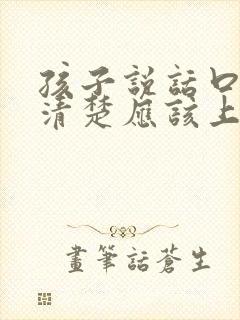 孩子説話口
清楚應該上
畫筆話蒼生